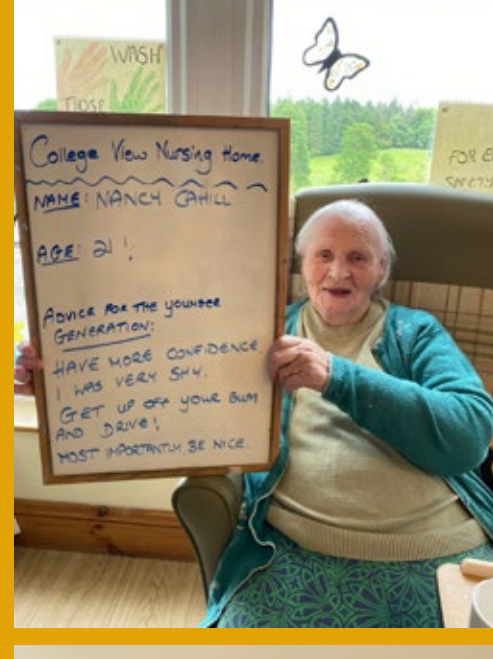 WASH
THOSE
FOR E
SAFETY
College View Nursing Home.
NAME: NANCY CAHILL
AGE: 21!
ADVICE FOR THE YOUNGER
GENERATION:
HAVE MORE CONFIDENCE.
I WAS VERY SHY.
GET UP OFF YOUR BUM
AND DRIVE!
MOST IMPORTANTLY BE NICE.